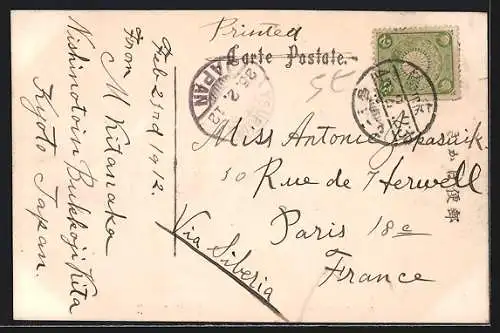 Printed
Carte Postale.
Feb 23rd 1912.
From M Kitanaka
Nishinotoin Bukkoji Kita
Kyoto Japan.
JAPAN
25.2.12
Miss Antonie
10 Rue de
Paris 18e
France
Via Siberia
便郵